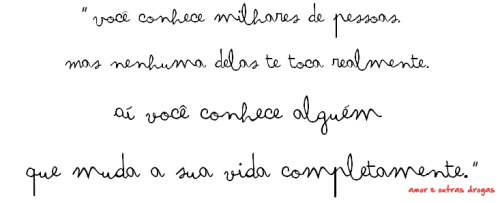 "você conhece milhares de pessoas.
mas nenhuma delas te toca realmente.
aí você conhece alguém
que muda a sua vida completamente."
amor e outras drogas